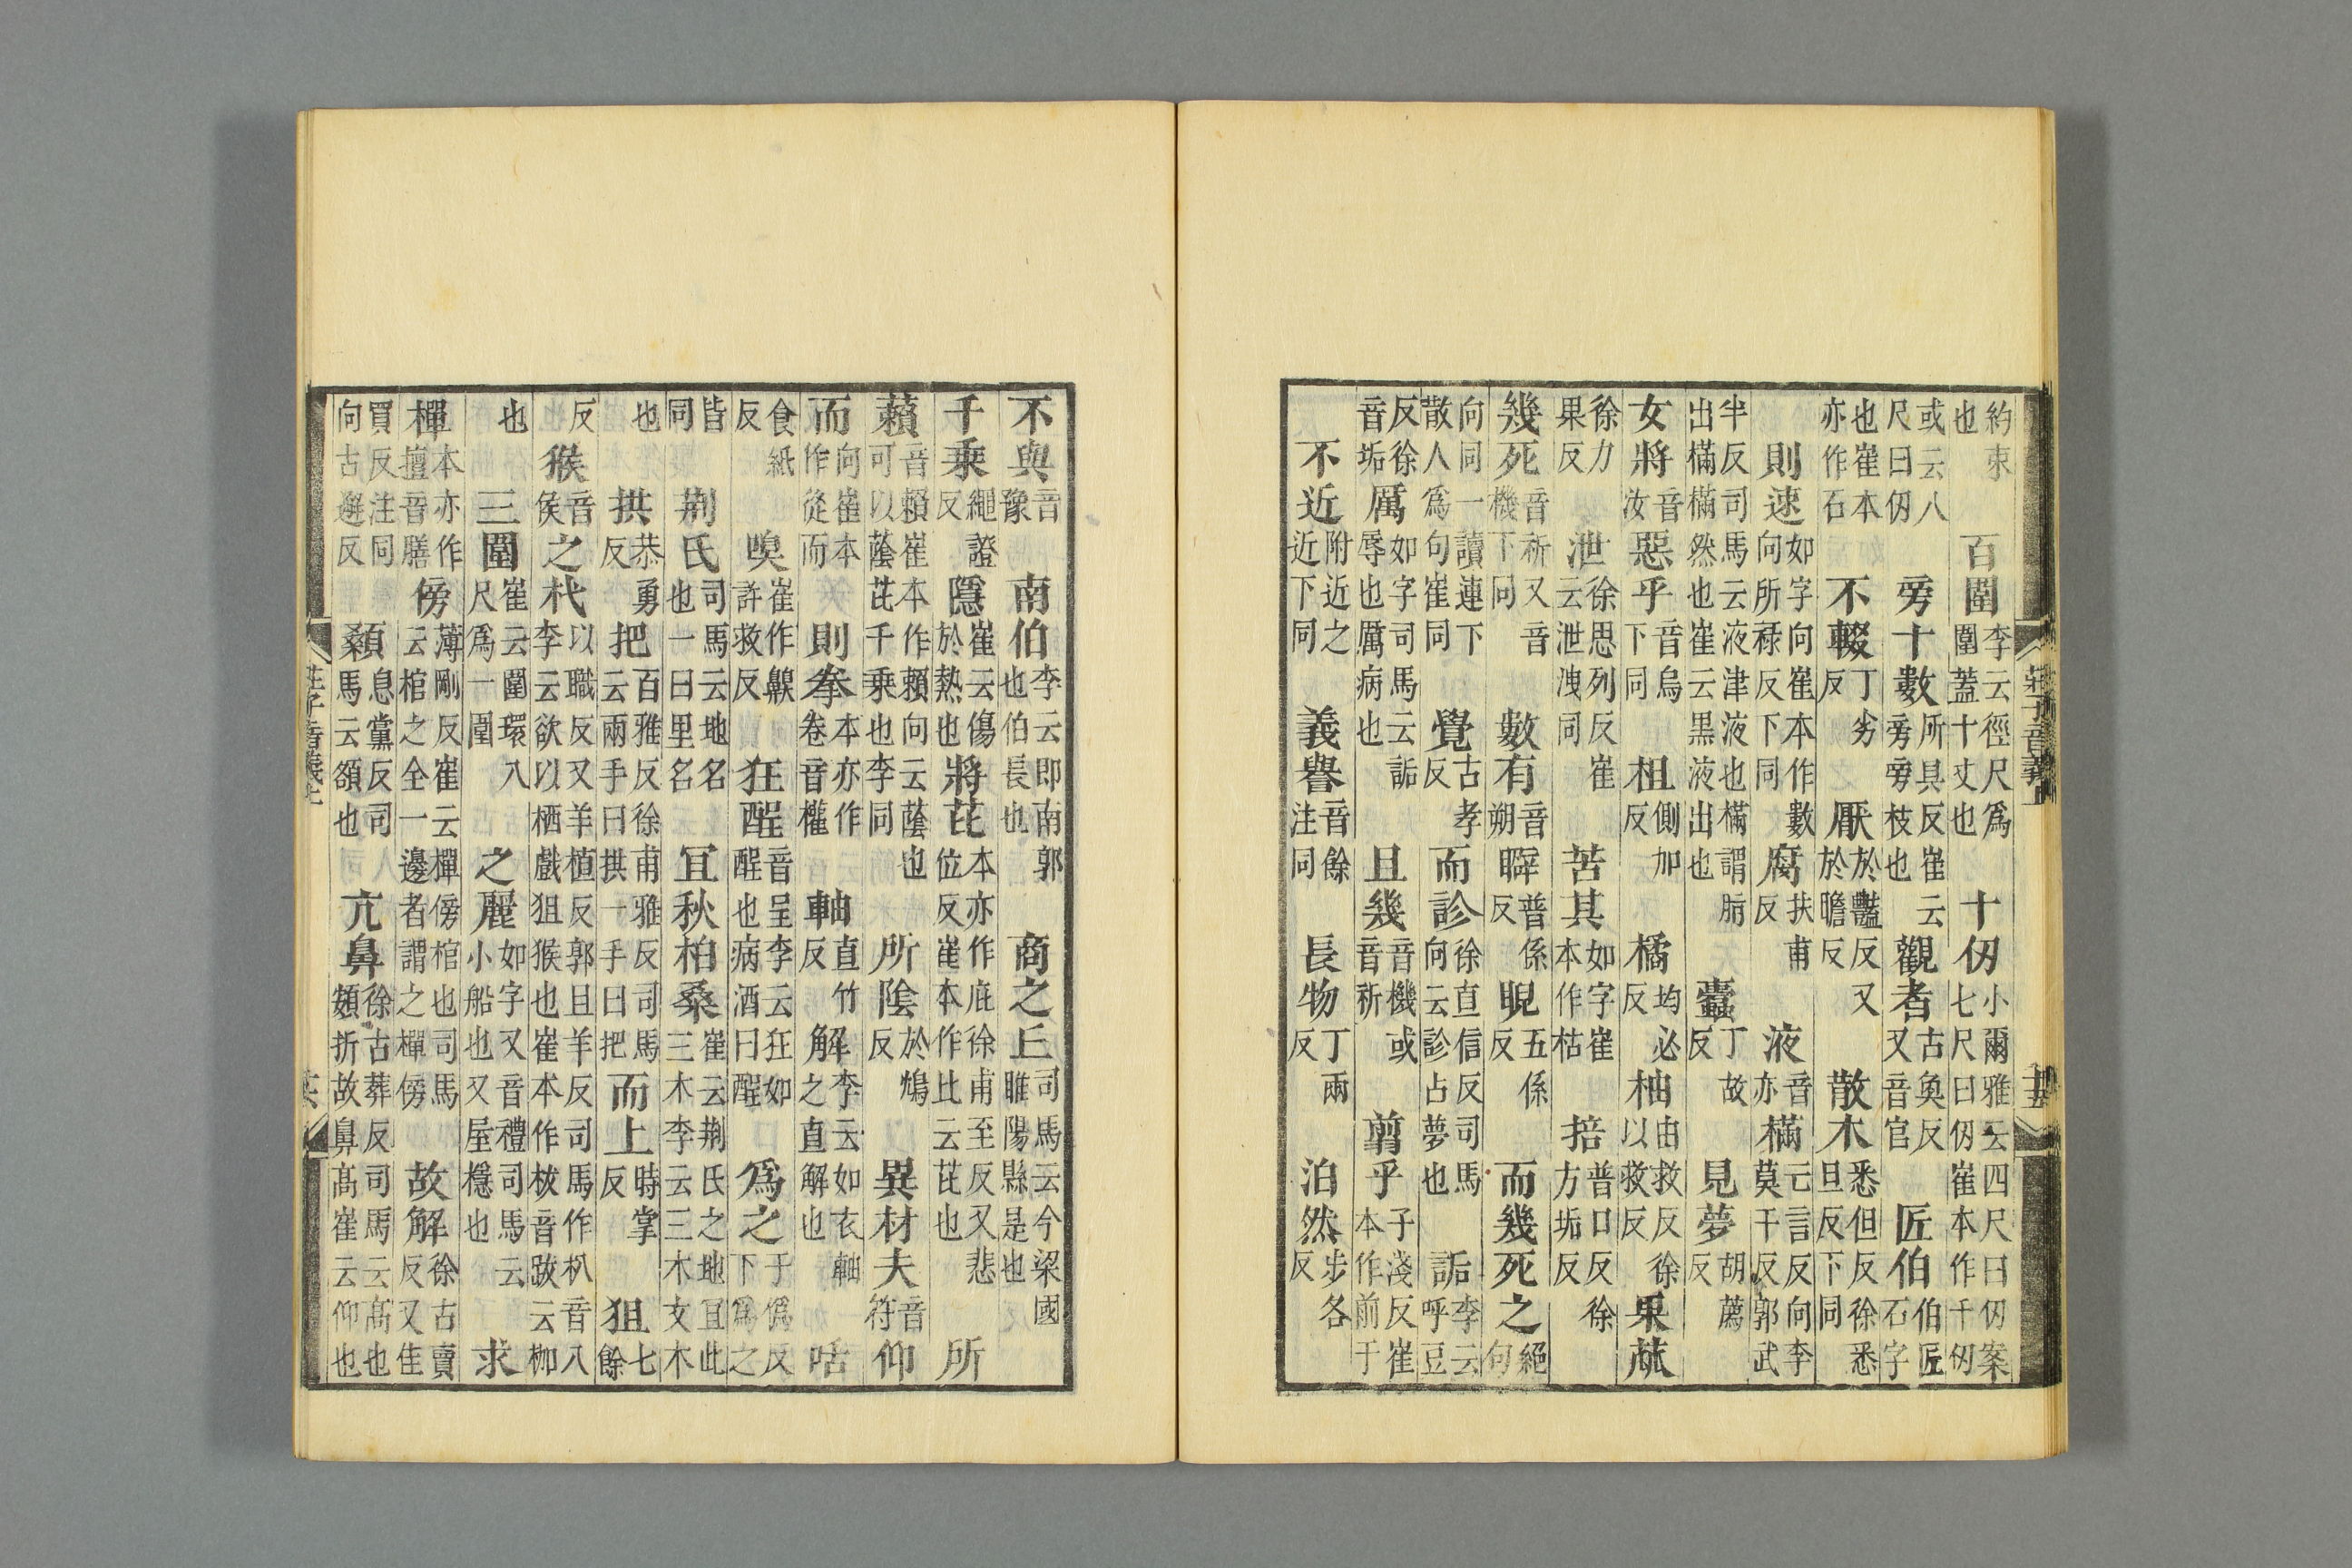 莊子音義上 十五
約束也百圍李云徑尺爲圍蓋十丈也十仞小爾雅云四尺曰仞案七尺曰仞崔本作千仞
或云八尺曰仞旁十數所具反崔云旁旁枝也觀者古奐反又音官匠伯伯匠石字
也崔本亦作石不輟丁劣反厭於豔反又於瞻反散木悉但反徐悉旦反下同
則速如字向崔本作數向所祿反下同腐扶甫反液音亦樠亡言反向李莫干反郭武
半反司馬云液津液也樠謂脂出樠樠然也崔云黑液出也蠹丁故反見夢胡薦反
女將音汝惡乎音烏下同柤側加反橘均必反柚由救反徐以救反果蓏
徐力果反泄徐思列反崔云泄洩同苦其如字崔本作枯掊普口反徐方垢反
幾死音祈又音機下同數有音朔睥普係反睨五係反而幾死之絕句
向同一讀連下散人爲句崔同覺古孝反而診徐直信反司馬向云診占夢也詬李云呼豆
反徐音垢厲如字司馬云詬辱也厲病也且幾音機或音祈翦乎子淺反崔本作前于
不近附近之近下同義譽音餘注同長物丁兩反泊然步各反
不與音豫南伯李云即南郭也伯長也商之丘司馬云今梁國睢陽縣是也
千乘繩證反隱崔云傷於熱也將芘本亦作庇徐甫至反又悲位反崔本作比云芘也所
藾音賴崔本作賴向云蔭也可以蔭芘千乘也李同所陰於鴆反異材夫音符仰
而向崔本作從而則拳本亦作卷音權軸直竹反解李云如衣軸之直解也咶
食紙反嗅崔作齅許救反狂酲音呈李云狂如酲也病酒曰酲爲之于僞反下爲之
皆同荊氏司馬云地名也一曰里名宜秋柏桑崔云荊氏之地宜此三木李云三木文木
也拱恭勇反把百雅反徐甫雅反司馬云兩手曰拱一手曰把而上時掌反狙七餘
反猴音侯之杙以職反又羊植反郭且羊反司馬作朳音八李云欲以栖戲狙猴也崔本作柭音跋云枷
也三圍崔云圍環八尺爲一圍之麗如字又音禮司馬云小船也又屋穩也求
樿本亦作擅音膳傍薄剛反崔云樿傍棺也司馬云棺之全一邊者謂之樿傍故解徐古賣反又佳
買反注同向古邂反顙息黨反司馬云額也亢鼻徐古葬反司馬云高也頞折故鼻高崔云仰也
莊子音義上